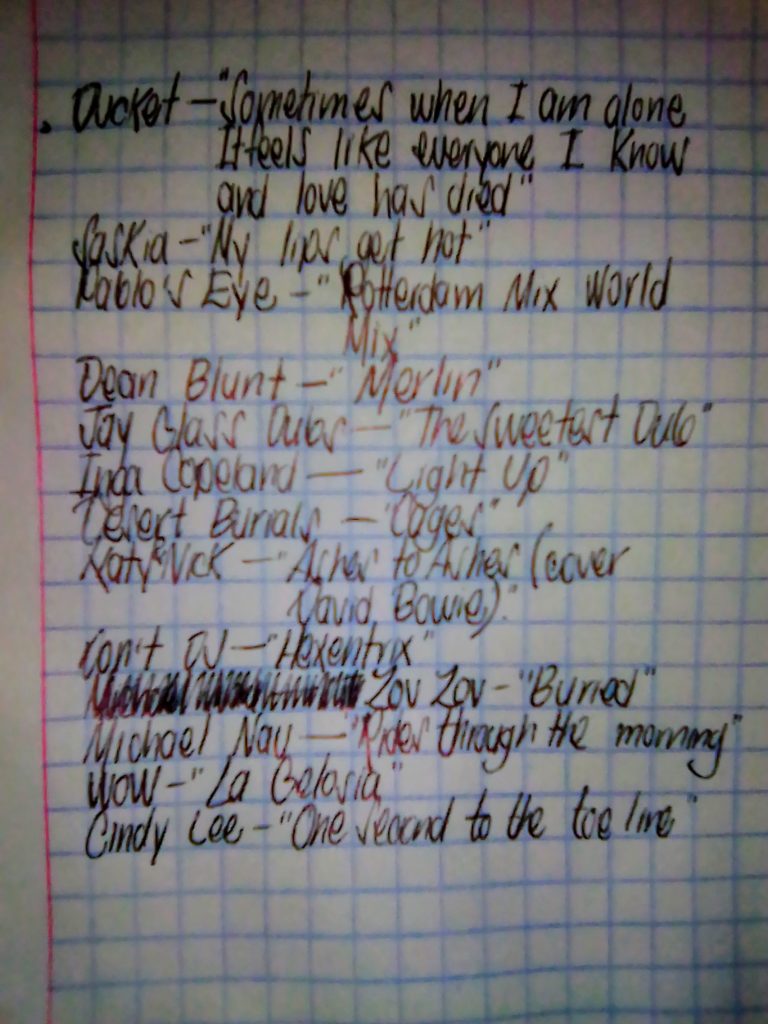 . Ducket – "Sometimes when I am alone
It feels like everyone I know
and love has died"
Saskia – "My lips get hot"
Pablo's Eye – "Rotterdam Mix World
Mix"
Dean Blunt – "Merlin"
Jay Glass Dubs – "The Sweetest Dub"
Inga Copeland – "Light Up"
Desert Burials – "Cages"
Katy Nick – "Ashes to Ashes (cover
David Bowie)."
Don't DJ – "Hexentrix"
Zov Zov – "Buried"
Michael Nau – "Rides through the morning"
WOW – "La Gelosia"
Cindy Lee – "One second to the toe line"